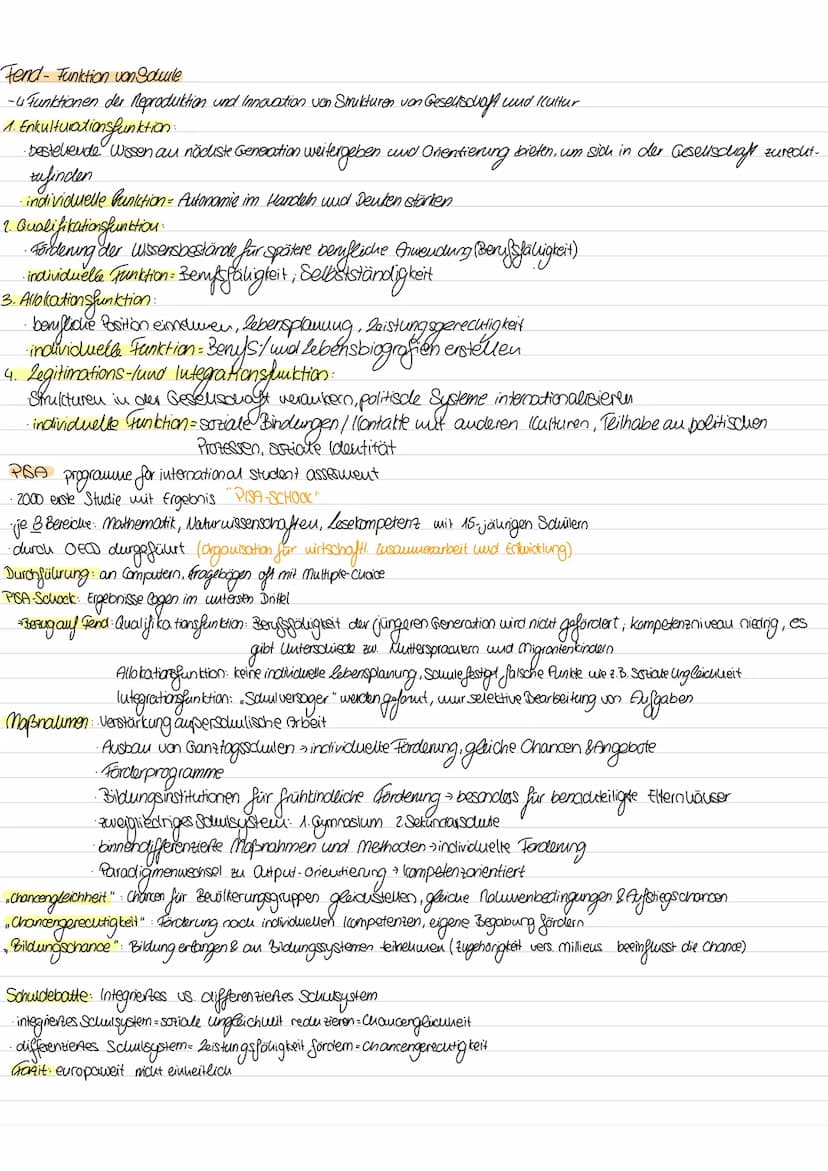 Fend - Funktion von Schule
- 4 Funktionen der Reproduktion und Innovation von Strukturen von Gesellschaft und Kultur
1. Enkulturationsfunktion:
· bestehende Wissen an nächste Generation weitergeben und Orientierung bieten, um sich in der Gesellschaft zurecht-
zufinden
· individuelle Funktion = Autonomie im Handeln und Denken stärken
2. Qualifikationsfunktion:
· Förderung der Wissensbestände für spätere berufliche Anwendung (Berufsfähigkeit)
· individuelle Funktion = Berufsfähigkeit, Selbstständigkeit
3. Allokationsfunktion:
· berufliche Position einnehmen, Lebensplanung, Leistungsgerechtigkeit
· individuelle Funktion = Berufs-/und Lebensbiografien erstellen
4. Legitimations-/und Integrationsfunktion:
Strukturen in der Gesellschaft verankern, politische Systeme internationalisieren
· individuelle Funktion = soziale Bindungen / Kontakte mit anderen Kulturen, Teilhabe an politischen
Prozessen, soziale Identität
PISA programme for international student assessment
· 2000 erste Studie mit Ergebnis "PISA-SCHOCK"
· je 3 Bereiche: Mathematik, Naturwissenschaften, Lesekompetenz mit 15-jährigen Schülern
· durch OECD durgeführt (Organisation für wirtschaftl. Zusammenarbeit und Entwicklung)
Durchführung: an Computern, Fragebögen oft mit Multiple-Choice
PISA-Schock: Ergebnisse lagen im untersten Drittel
→ Bezug auf Fend: Qualifikationsfunktion: Berufsfähigkeit der jüngeren Generation wird nicht gefördert, kompetenzniveau niedrig, es
gibt Unterschiede zw. Muttersprachlern und Migrantenkindern
Allokationsfunktion: keine individuelle Lebensplanung, Schule festigt falsche Punkte wie z.B. Soziale Ungleichheit
Integrationsfunktion: „Schulversager" werden geformt, nur selektive Bearbeitung von Aufgaben
Maßnahmen: Verstärkung außerschulische Arbeit
· Ausbau von Ganztagsschulen → individuelle Förderung, gleiche Chancen & Angebote
· Förderprogramme
· Bildungsinstitutionen für frühkindliche Förderung → besonders für benachteiligte Elternhäuser
· zweigliedriges Schulsystem: 1. Gymnasium 2. Sekundarschule
· binnendifferenzierte Maßnahmen und Methoden → individuelle Förderung
· Paradigmenwechsel zu Output-Orientierung → kompetenzorientiert
„Chancengleichheit": Chancen für Bevölkerungsgruppen gleichstellen, gleiche Rahmenbedingungen & Aufstiegschancen
„Chancengerechtigkeit": Förderung nach individuellen Kompetenzen, eigene Begabung fördern
„Bildungschance": Bildung erlangen & an Bildungssystemen teilnehmen (Zugehörigkeit vers. Milieus beeinflusst die Chance)
Schuldebatte: Integriertes vs. differenziertes Schulsystem
· integriertes Schulsystem = soziale Ungleichheit reduzieren = Chancengleichheit
· differenziertes Schulsystem = Leistungsfähigkeit fördern = Chancengerechtigkeit
Fazit: europaweit nicht einheitlich